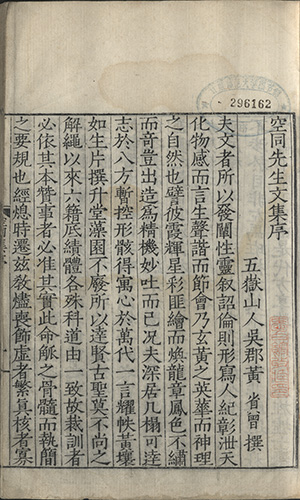 296162
空同先生文集序
五嶽山人吳郡黃省曾撰
夫文者所以發闡性靈敘詔倫則形寫人紀彰泄天
化物感而言生聲諧而節會乃玄黃之英華而神理
之自然也譬彼霞輝星彩匪繪而煥龍章鳳色不繡
而奇豈出造爲精機妙吐而已况夫深居几榻可逵
志於八方暫控形骸得寓心於萬代一言耀帙黃壤
如生片撰升堂藻園不廢所以達賢古聖莫不尚之
解繩以來六籍底績體各殊科道由一致故裁訓者
必依其本贊事者必准其實此命觚之骨髓而執簡
之要規也經熄時遷茲教燼喪飾虛者繁負核者寡